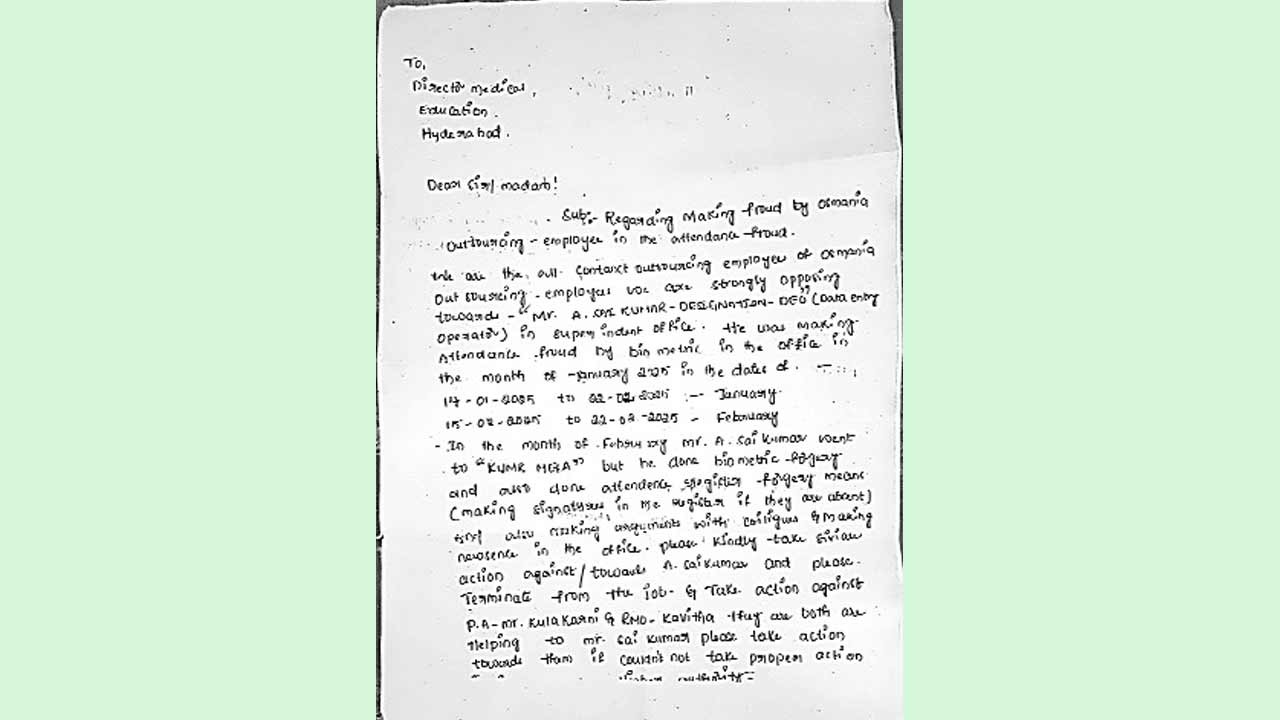 To,
Director medical,
Education.
Hyderabad.
Dear Sir/ madam!
Sub:- Regarding Making froud by osmania
outsourcing - employee in the attendance froud.
We are the all contract outsourcing employees of osmania
out sourcing - employees we are strongly opposing
towards - "Mr. A. SAI KUMAR - DESIGNATION - DEO" (Data entry
operator) in superindent office. He was making
Attendance froud by bio metric in the office in
the month of - january 2025 in the dates of.
17-01-2025 to 02-02-2025 :- January
15-02-2025 to 22-02-2025 - February
- In the month of February mr. A. Sai Kumar went
to "KUMB MELA" but he done biometric - forgery
and also done attendence register - forgery means
(making signatures in the register if they are absent)
and also making arguments with colligues & Making
neusence in the office. please kindly take
action against/towards A. Sai Kumar and please.
Terminate from the job. & Take action against
P.A - mr. Kulakarni & RMO - Kavitha they are both are
Helping to mr. Sai Kumar please take action
towards them if couldn't not take proper action
higher authority.